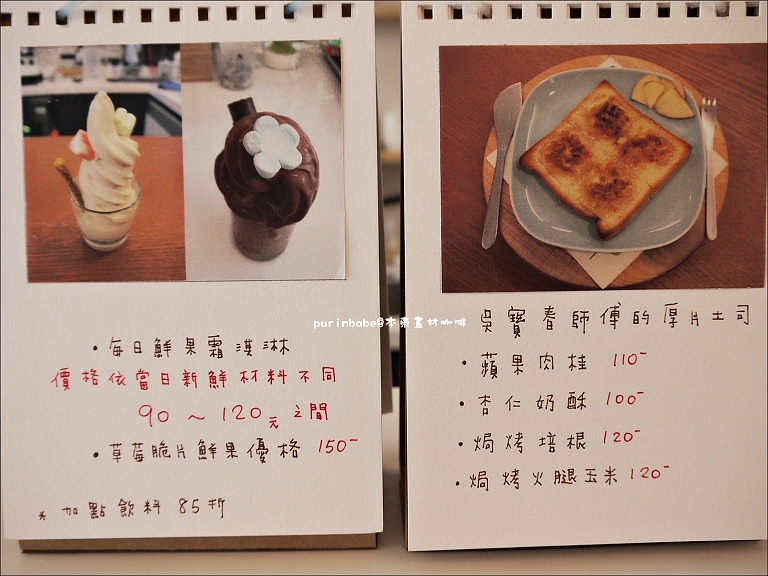 ・每日鮮果霜淇淋
價格依當日新鮮材料不同
90～120元之間
・草莓脆片鮮果優格 150-
* 加點飲料 85折
purinbabe@本東畫材咖啡
吳寶春師傅的厚片土司
・蘋果肉桂 110-
・杏仁奶酥 100-
・焗烤培根 120-
・焗烤火腿玉米 120-